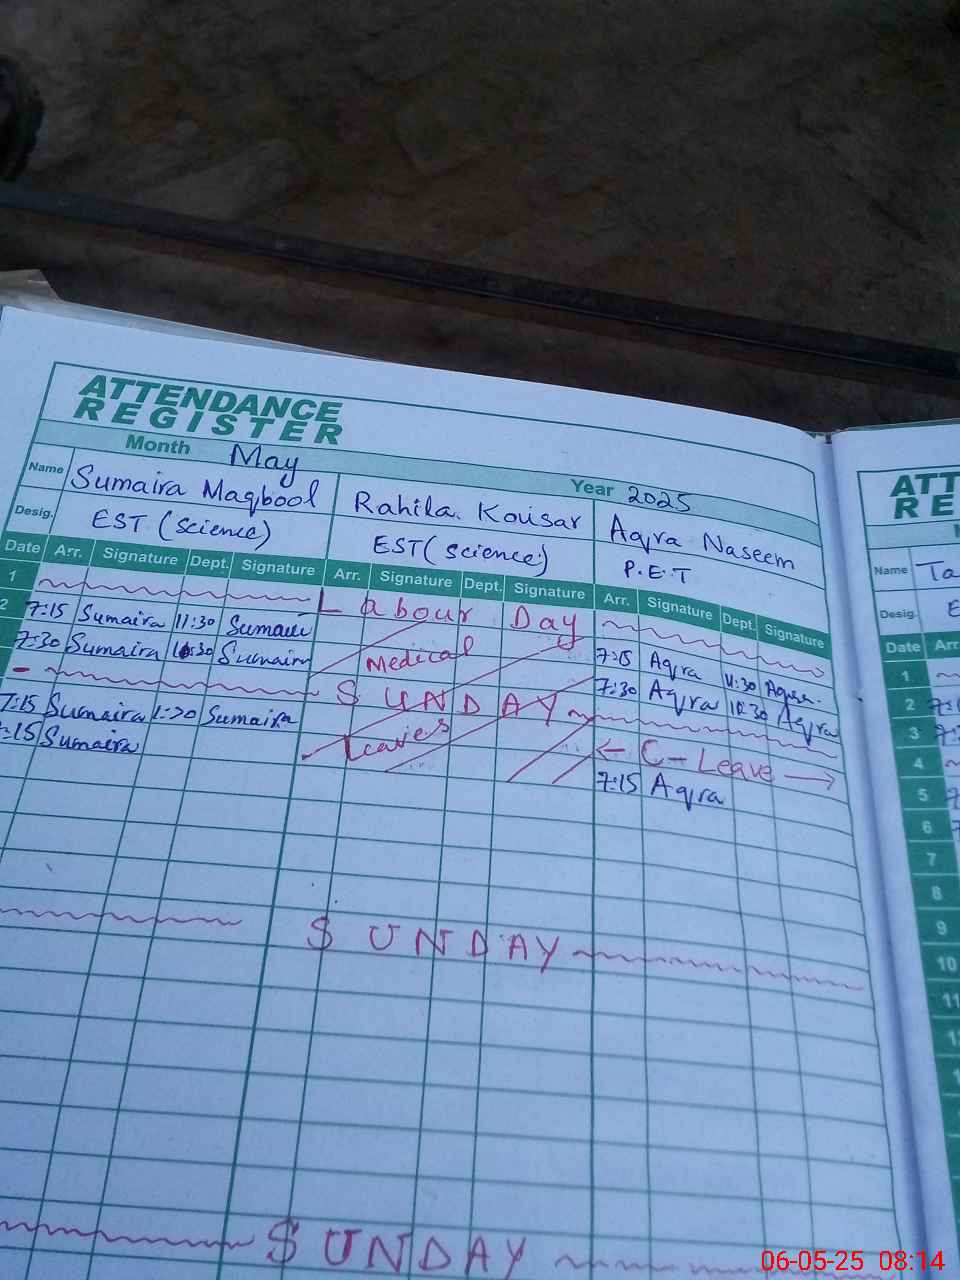 ATTENDANCE
REGISTER
Month May Year 2025
Name Sumaira Maqbool Rahila Kousar Aqra Naseem
Desig. EST (Science) EST (Science) P.E.T
Date Arr. Signature Dept. Signature Arr. Signature Dept. Signature Arr. Signature Dept. Signature
1 Labour Day
2 7:15 Sumaira 11:30 Medical 7:15 Aqra 11:30
7:30 Sumaira Sumaira 7:30 Aqra Aqra
SUNDAY
7:15 Sumaira Sumaira Leaves ← C-Leave →
:15 Sumaira 7:15 Aqra
SUNDAY
SUNDAY
ATT
RE
Name Ta
Desig. E
Date Arr
1
2
3
4
5
6
7
8
9
10
11
06-05-25 08:14